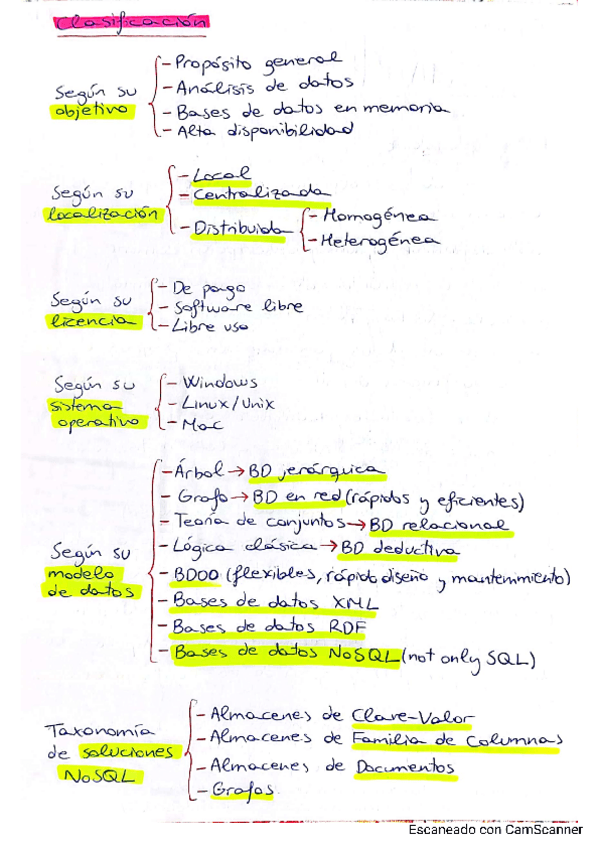 Clasificación
Según su objetivo
- Propósito general
- Análisis de datos
- Bases de datos en memoria
- Alta disponibilidad
Según su localización
- Local
- Centralizada
- Distribuida
- Homogénea
- Heterogénea
Según su licencia
- De pago
- Software libre
- Libre uso
Según su sistema operativo
- Windows
- Linux/Unix
- Mac
Según su modelo de datos
- Árbol → BD jerárquica
- Grafo → BD en red (rápidos y eficientes)
- Teoría de conjuntos → BD relacional
- Lógica clásica → BD deductiva
- BDOO (flexibles, rápido diseño y mantenimiento)
- Bases de datos XML
- Bases de datos RDF
- Bases de datos NoSQL (not only SQL)
Taxonomía de soluciones NoSQL
- Almacenes de Clave-Valor
- Almacenes de Familia de Columnas
- Almacenes de Documentos
- Grafos
Escaneado con CamScanner